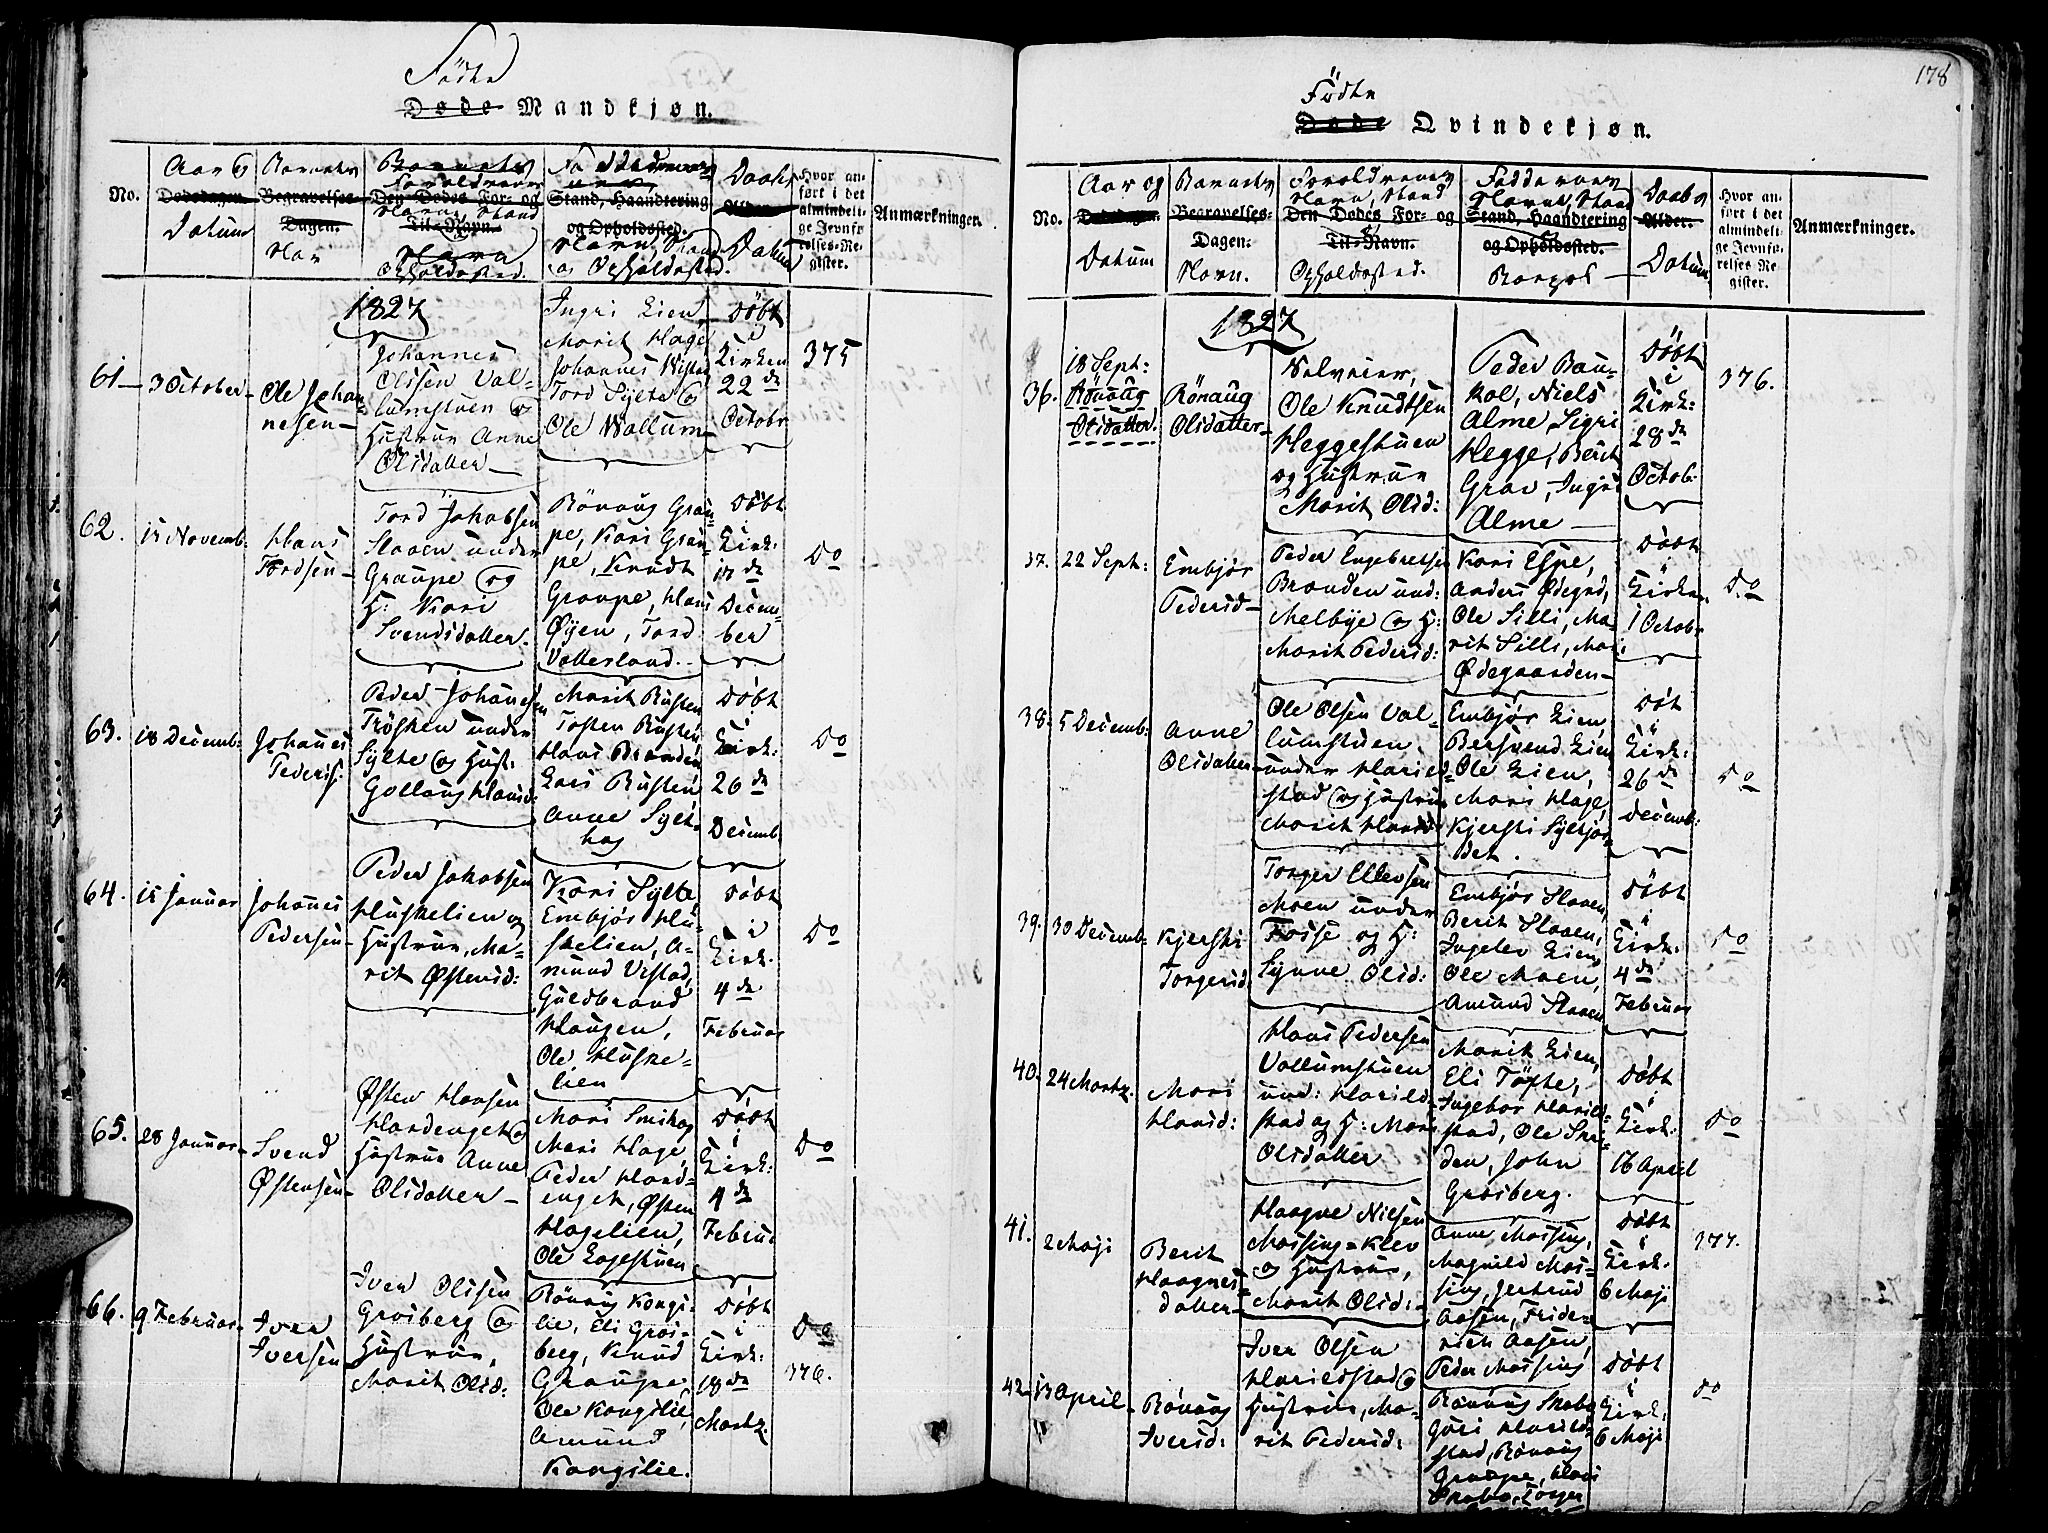 Födte
Døde Mandkjøn.
No.
Aar og
Dødsdagen.
Datum
Barnets
Begravelses-
Dagen.
Navn
Barnets
Forældrenes
Den Dødes For- og
Navn, Stand
Til-Navn.
Navn
Opholdssted.
Stand, Haandtering
og Opholdssted.
Navn, Stand
og Opholdssted.
Daabs
Alder.
Datum
Hvor an-
ført i det
almindeli-
ge Jevnfø-
relses-Re-
gister.
Anmærkninger.
1827
61 3 October
Ole Johan-
nesen
Johannes
Olssen Val-
lumstuen og
Hustrue Anne
Olsdatter
Ingri Lien,
Marit Hage,
Johannes Wistad
Tord Sylte og
Ole Wallum
Döbt
i
Kirken
22 de
Octobr
375
62. 15 Novemb:
Hans
Tordsen
Tord Jakobsen
Slaaen under
Graupe og
H: Kari
Svendsdatter.
Rönaug Grau-
pe, Kari Grau-
pe, Knudt
Graupe, Hans
Øÿen, Tord
Vollerland.
Döbt
i
Kirk:
de
Decem-
ber
Do
63. 18 Decemb:
Johanes
Peders:
Peder Johanesen
Tröshen under
Sylte og Hust:
Gollaug Hansd:
Marit Rusten
Tosten Rusten,
Hans Branden
Lars Rusten,
Anne Sylt-
hag
Döbt
i
Kirk:
26 de
Decemb
Do
64. 15 Januar
Johanes
Pedersen
Peder Jakobsen
Huskelien og
Hustrue, Ma-
rit Østensd:
Kari Sylte
Embjör Hu-
skelien, A-
mund Vistad,
Guldbrand
Haugen,
Ole Huske-
lien
Döbt
i
Kirk.
4 de
Februar
Do
65. 28 Januar
Svend
Østensen
Østen Hansen
Hardenget og
Hustrue Anne
Olsdatter
Mari Smihag
Mari Hage,
Peder Hard-
enget, Østen
Hagelien,
Ole Lagestuen
Döbt
i
Kirk:
4 de
Februar
Do
66. 9 Februar
Iver
Iversen
Iver Olssen
Graiberg og
Hustrue,
Marit Olsd:
Rönaug Kongs-
lie, Eli Grai-
berg, Knud
Graupe
Ole Kongslie,
Amund
Kongslie.
Döbt
i
Kirk:
18 de
Martz.
Do
376.
178
Födte
Døde Qvindekjøn.
No.
Aar og
Dødsdagen.
Datum
Barnets
Begravelses-
Dagen.
Navn.
Forældrenes
Navn, Stand
Den Dødes For- og
Til-Navn.
Opholdssted.
Faddernes
Navn, Stand
Stand, Haandtering
og Opholdssted.
Daabs
Alder.
Datum
Hvor an-
ført i det
almindeli-
ge Jevnfø-
relses Re-
gister.
Anmærkninger.
1827
36. 18 Sept:
Rönaug
Olsdatter.
Rönaug
Olsdatter
Selveier,
Ole Knudtsen
Heggestuen
og Hustrue
Marit Olsd:
Peder Bau-
kol, Niels
Alme, Sigri
Hegge, Berit
Grav, Ingri
Alme
Döbt
i
Kirk:
28 de
Octob:
376.
37. 22 Sept:
Embjör
Pedersd
Peder Engebretsen
Branden und:
Melbye og H:
Marit Pedersd:
Kari Espe,
Anders Ødegrd,
Ole Silli, Ma-
rit Silli, Mari
Ødegaarden
Döbt
i
Kirken
1 Octobr
Do
38. 5 Decemb:
Anne
Olsdatter
Ole Olsen Val-
lumstuen
under Harild-
stad og Hustrue
Marit Haralds
Embjör Lien,
Bersvend Lien
Ole Lien,
Mari Hage,
Kjersti Syltjor-
det.
Döt
i
Kirk:
26 de
Decemb:
Do
39. 30 Decemb:
Kjersti
Torgersd
Torger Ellevsen
Moen under
Fosse og H:
Synne Olsd:
Embjör Slaaen,
Berit Slaaen,
Ingelev Lien,
Ole Moen,
Amund Slaaen
Döbt
i
Kirk:
4 de
Februar
Do
40. 24 Martz.
Mari
Hansd:
Hans Pedersen
Vallumstuen
und: Harild-
stad og H: Mari
Olsdatter
Marit Lien,
Eli Töfte,
Ingebor Harild-
stad, Ole Ski-
den, John
Graiberg.
Döbt
i
Kirk:
16 April
Do
41. 2 Maji
Berit
Haagnes-
datter
Haagne Nielsen
Massing=Klev
og Hustrue,
Marit Olsd:
Anne Massing,
Magnild Mas-
sing, Jertrud
Aasen, Frider-
rich Aasen,
Peder Massing
Döbt
i
Kirk.
6 Maji
377.
42. 13 April
Rönaug
Iversd:
Iver Olsen
Harildstad og
Hustrue, Ma-
rit Pedersd:
Rönaug Skabo
Guri Harild-
stad, Rönaug
Graupe, Hans
Skabo, Torger
Döbt
i
Kirk.
6 Maji
Do